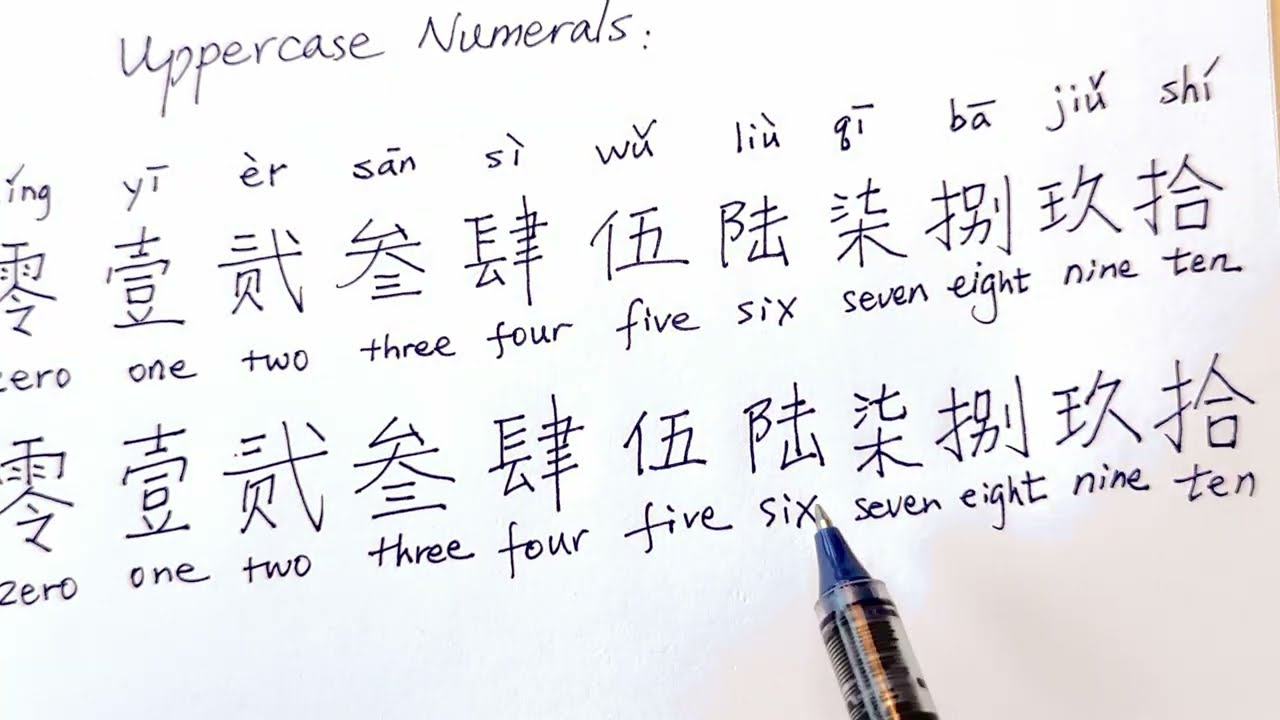 Uppercase Numerals:
íng yī èr sān sì wǔ liù qī bā jiǔ shí
零 壹 贰 叁 肆 伍 陆 柒 捌 玖 拾
zero one two three four five six seven eight nine ten
零 壹 贰 叁 肆 伍 陆 柒 捌 玖 拾
zero one two three four five six seven eight nine ten